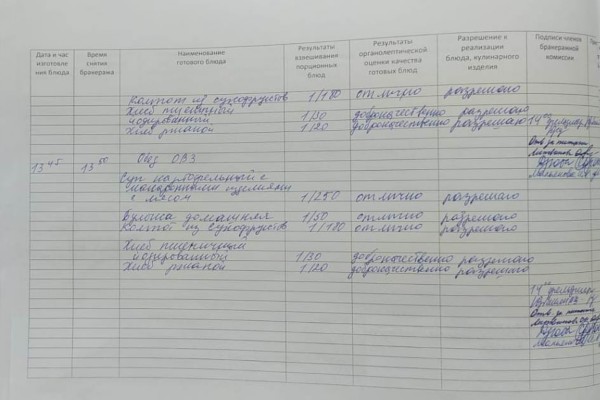 Дата и час изготовле ния блюда
Время снятия бракеража
Наименование готового блюда
Результаты взвешивания порционных блюд
Результаты органолептической оценки качества готовых блюд
Разрешение к реализации блюда, кулинарного изделия
Подписи членов бракеражной комиссии
Компот из сухофруктов 1/180 отлично разрешаю
Хлеб пшеничный
йодированный 1/30 доброкачественно разрешаю
Хлеб ржаной 1/20 доброкачественно разрешаю 14 00
Отв за питан
13 45 13 50 Обед ОВЗ
Суп картофельный с
макаронными изделиями
с мясом 1/250 отлично разрешаю
Булочка домашняя 1/50 отлично разрешаю
Компот из сухофруктов 1/180 отлично разрешаю
Хлеб пшеничный
йодированный 1/30 доброкачественно разрешаю
Хлеб ржаной 1/20 доброкачественно разрешаю
14
Отв за питан